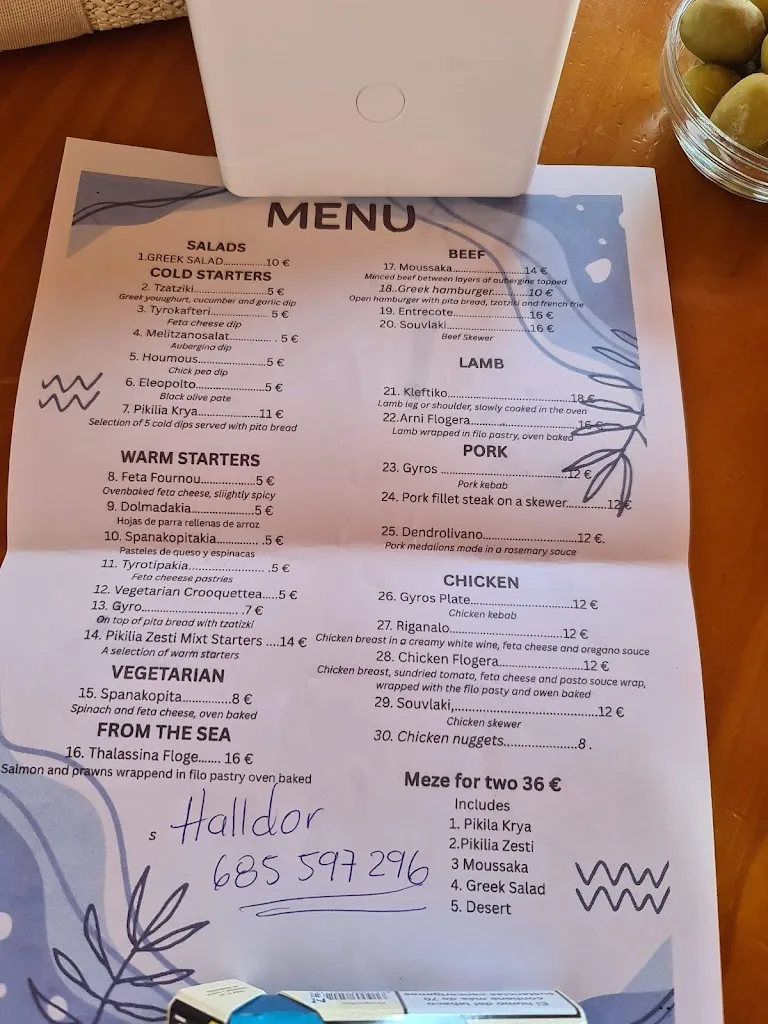 MENU
SALADS
1.GREEK SALAD............10 €
COLD STARTERS
2. Tzatziki..................5 €
Greek youughurt, cucumber and garlic dip
3. Tyrokafteri.............. 5 €
Feta cheese dip
4. Melitzanosalat........... . 5 €
Aubergina dip
5. Houmous.................5 €
Chick pea dip
6. Eleopolto.................5 €
Black olive pate
7. Pikilia Krya...............11 €
Selection of 5 cold dips served with pita bread
WARM STARTERS
8. Feta Fournou..............5 €
Ovenbaked feta cheese, sliightly spicy
9. Dolmadakia...............5 €
Hojas de parra rellenas de arroz
10. Spanakopitakia.......... .5 €
Pasteles de queso y espinacas
11. Tyrotipakia............... .5 €
Feta cheeese pastries
12. Vegetarian Crooquettea....5 €
13. Gyro....................... .7 €
On top of pita bread with tzatizki
14. Pikilia Zesti Mixt Starters ....14 €
A selection of warm starters
VEGETARIAN
15. Spanakopita............8 €
Spinach and feta cheese, oven baked
FROM THE SEA
16. Thalassina Floge....... 16 €
Salmon and prawns wrappend in filo pastry oven baked
BEEF
17. Moussaka..................14 €
Minced beef between layers of aubergine topped
18..Greek hamburger.........10 €
Open hamburger with pita bread, tzatziki and french frie
19. Entrecote...................16 €
20. Souvlaki....................16 €
Beef Skewer
LAMB
21. Kleftiko.........................18 €
Lamb leg or shoulder, slowly cooked in the oven
22.Arni Flogera.....................16 €
Lamb wrapped in filo pastry, oven baked
PORK
23. Gyros .........................12 €
Pork kebab
24. Pork fillet steak on a skewer...........12 €
25. Dendrolivano.....................12 €.
Pork medalions made in a rosemary sauce
CHICKEN
26. Gyros Plate.......................12 €
Chicken kebab
27. Riganalo.........................12 €
Chicken breast in a creamy white wine, feta cheese and oregano sauce
28. Chicken Flogera...................12 €
Chicken breast, sundried tomato, feta cheese and pasto sauce wrap,
wrapped with the filo pasty and owen baked
29. Souvlaki,...............................12 €
Chicken skewer
30. Chicken nuggets................8 .
Meze for two 36 €
Includes
1. Pikila Krya
2.Pikilia Zesti
3 Moussaka
4. Greek Salad
5. Desert
s Halldor
685 597 296
El humo del tabaco
contiene más de 70
sustancias cancerígenas